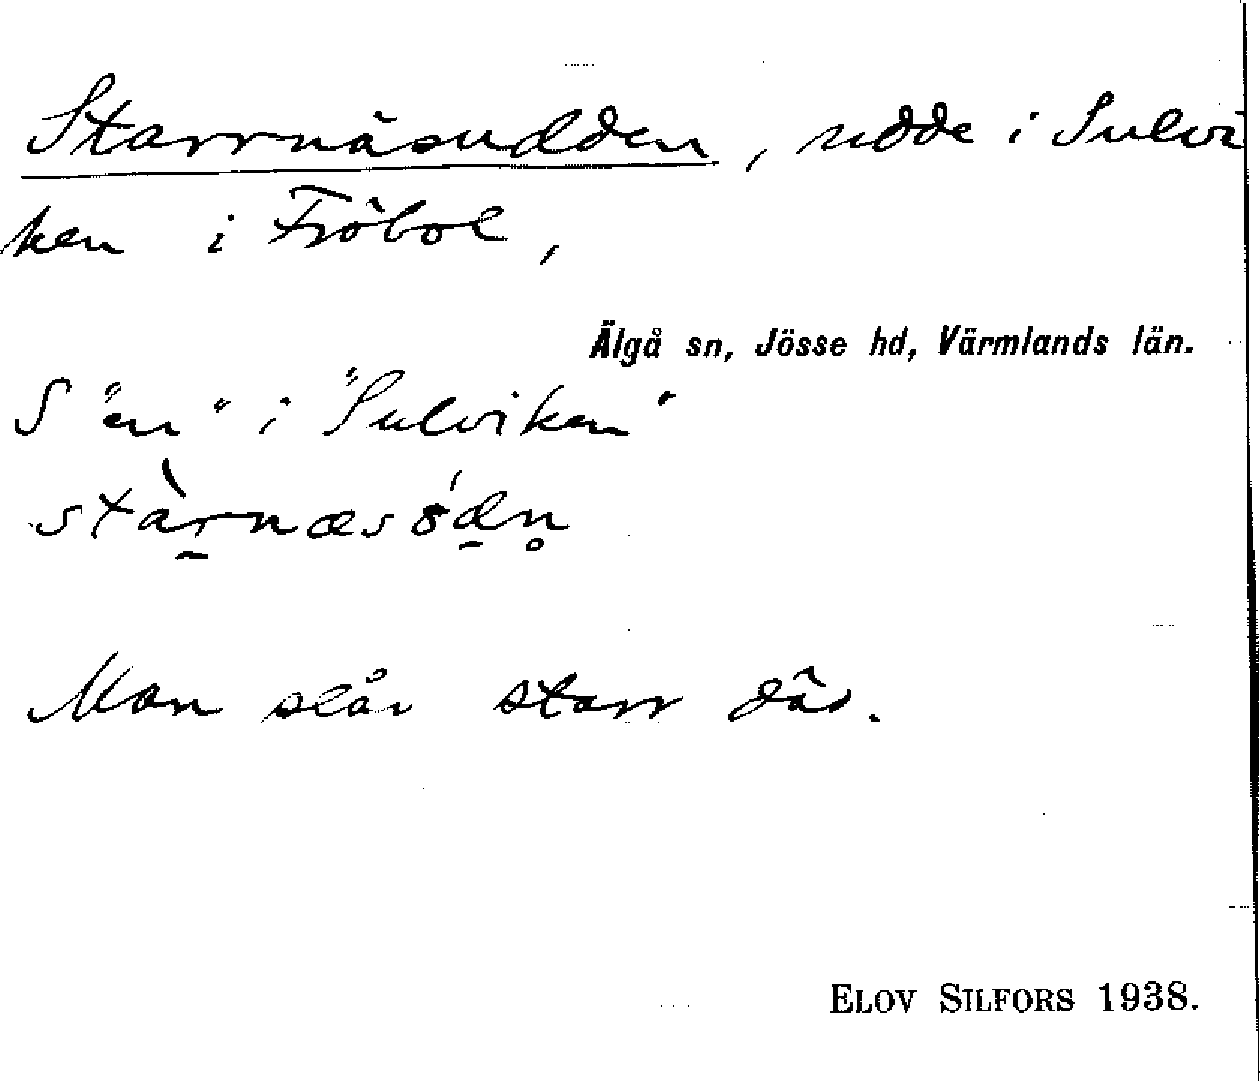 Starrnäsudden, udde i Sulvi
ken i Fröbol,
Älgå sn, Jösse hd, Värmlands län.
S "en" i "Sulviken"
stàr̠næsó̈d̠n̥
Man slår starr där.
ELOV SILFORS 1938.